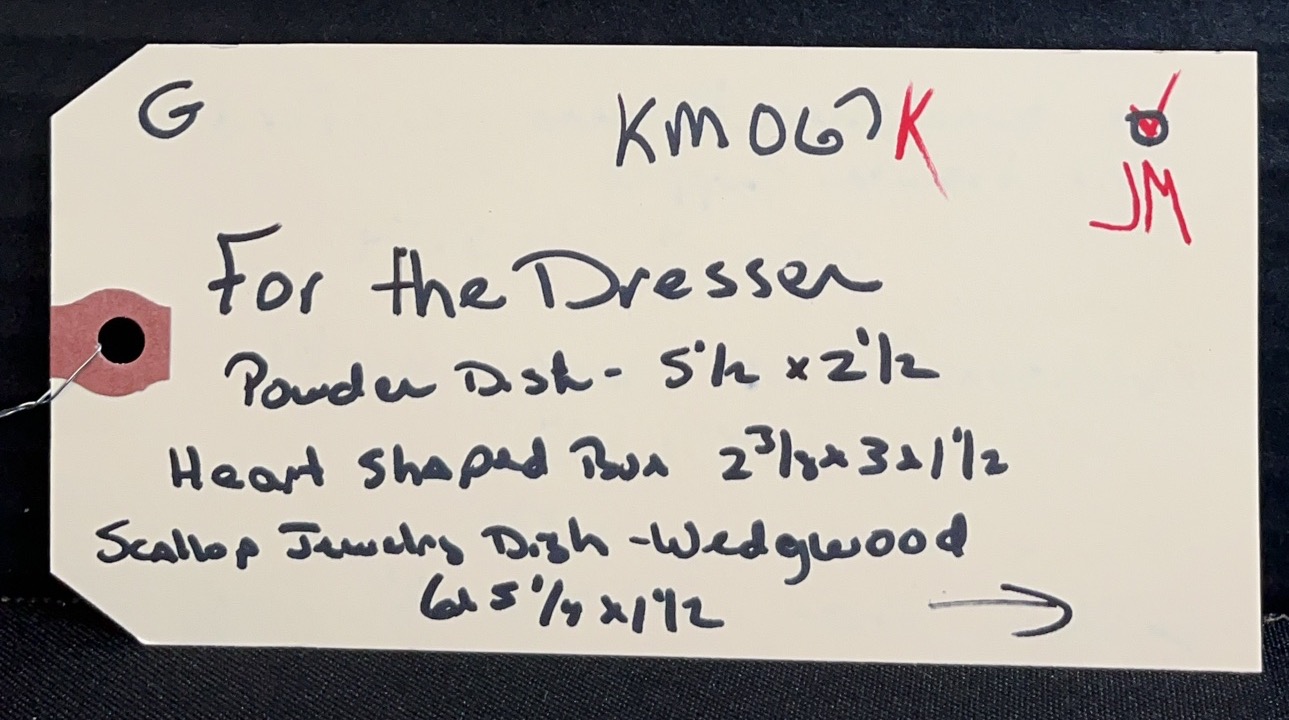 G KM067K
JM
For the Dresser
Powder Dish - 5 1/2 x 2 1/2
Heart Shaped Box 2 3/8 x 3 x 1 1/2
Scallop Jewelry Dish - Wedgwood
6 x 5 1/4 x 1 1/2 →